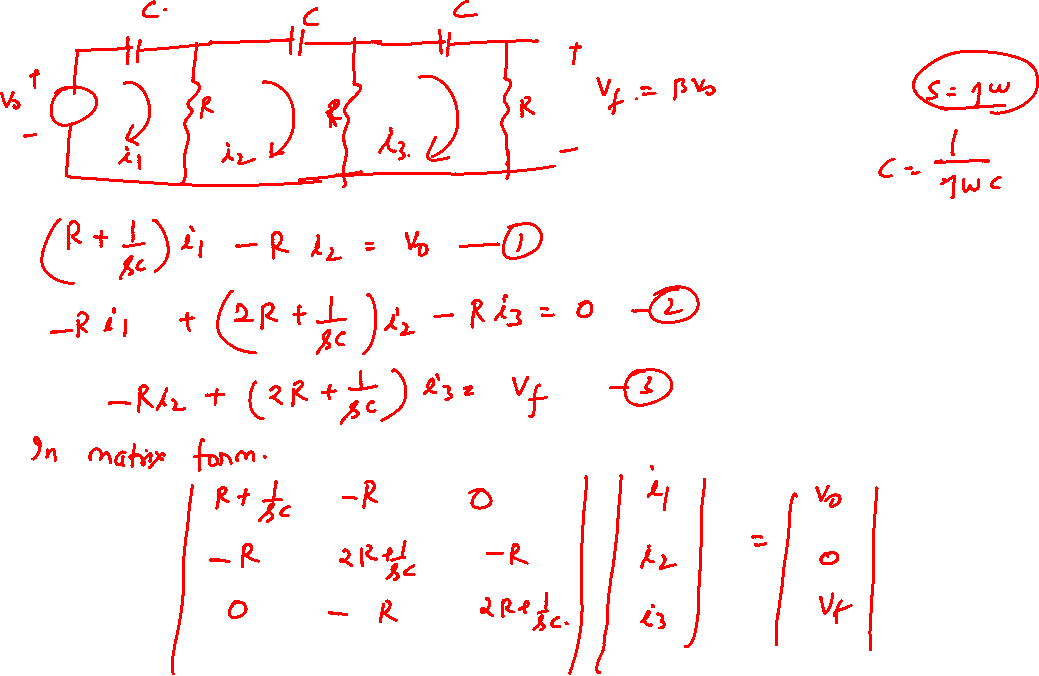 C. C C
+ V₀ − R i₁ R i₂ R i₃ + V_f = βV₀ −
S = jω
C = 1/jωC
(R + 1/SC) i₁ − R i₂ = V₀ — ①
−R i₁ + (2R + 1/SC) i₂ − R i₃ = 0 — ②
−R i₂ + (2R + 1/SC) i₃ = V_f — ③
In matrix form.
| R + 1/SC −R 0 | | i₁ | = | V₀ |
| −R 2R + 1/SC −R | | i₂ | | 0 |
| 0 − R 2R + 1/SC. | | i₃ | | V_f |